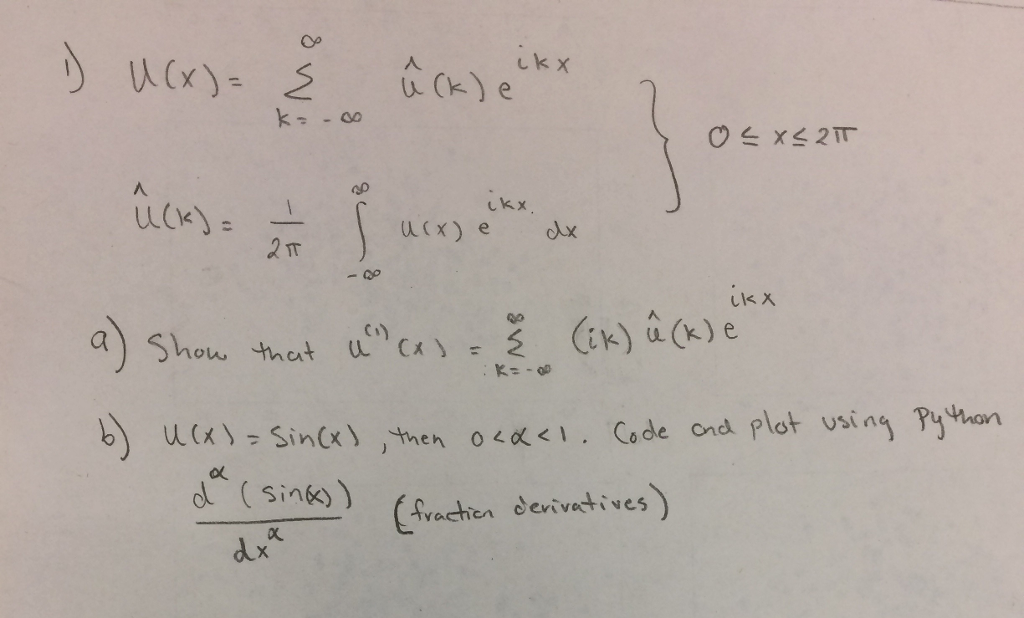 1) U(x) = ∞ Σ k = -∞ û(k) e^{ikx}
0 ≤ x ≤ 2π
û(k) = 1/2π ∞ ∫ -∞ u(x) e^{ikx} dx
a) Show that u^{(1)}(x) = ∞ Σ k = -∞ (ik) û(k) e^{ikx}
b) U(x) = Sin(x), then 0<α<1. Code and plot using Python
d^α (sin(x)) / dx^α (fraction derivatives)